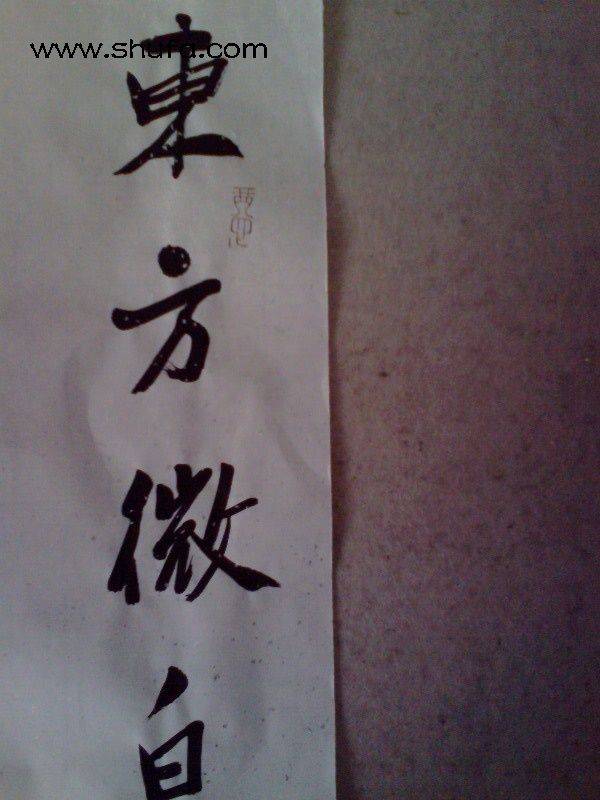 www.shufa.com
東方微白